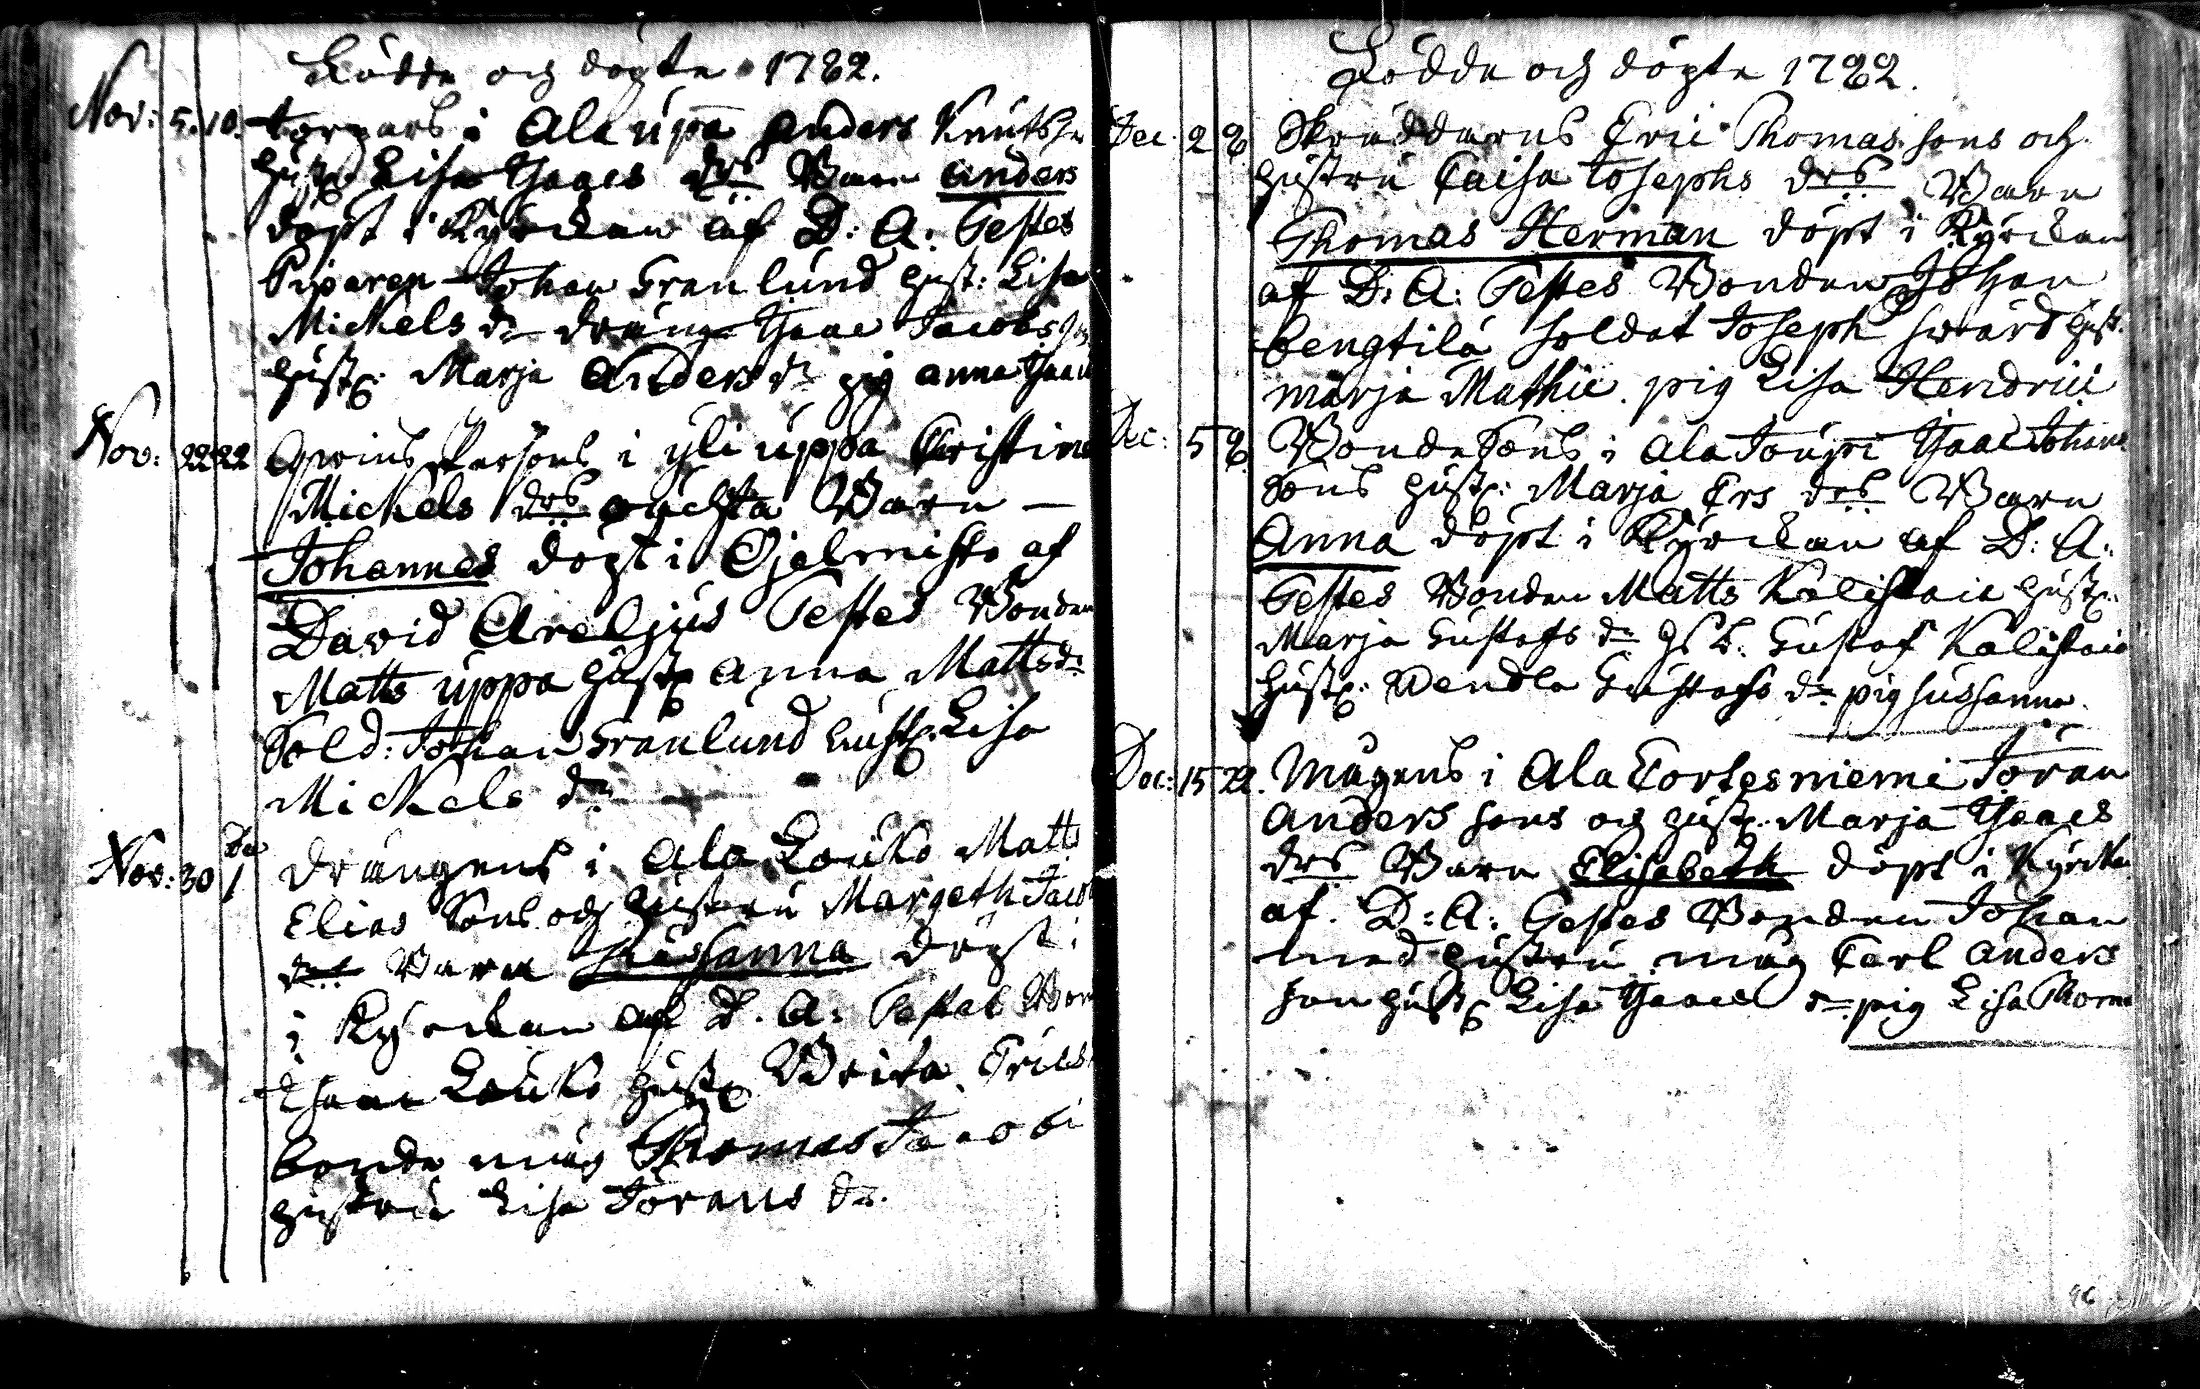 Födde och döpte 1782.
Nov: 5. 10. torpars i Ala uppa Anders Knuts
hust Lisa Isaacs drs Barn Anders
döpt i Kyrckan af D: A: Testes
Piparen Johan Granlund hust: Lisa
Mickels dr dräng Isaac Jacobs
hustr: Marja Anders dr pig anna Isaacs
Nov: 22 22 i yli uppa Christina
Mickels drs oächta Barn —
Johannes döpt i af
David Areljus Testes Bonden
Matts uppa hustr Anna Matts dr
Sold: Johan Granlund hustr: Lisa
Mickels dr
Nov: 30 De 1 drängens i Ala Louko Matts
Elias Sons och hustru Margeth Jacobs
drs Barn Susanna döpt i
i Kyrckan af D. A: Testes Bon
Isaac Louko hustr Brita Erics
bonde måg Thomas Jacobi
hustru Lisa Jörans dr.
Födde och döpte 1782.
Dec. 2 8 Skräddarens Eric Thomas sons och
hustru Caisa Josephs drs Barn
Thomas Herman döpt i Kyrckan
af D: A: Testes Bonden Johan
bengtilä soldat Joseph swärd hust.
marja Mathie. pig Lisa Hendrici
Dec: 5 8 Bonde Sons i Ala Joupi Isaac Johans
Sons hustr: Marja Ers drs Barn
Anna döpt i Kyrckan af D: A:
Testes Bonden Matts Kalistaia hustr:
Marja Gustafs dr Gustaf Kalistaia
hustr: Vendla Gustafs dr pig sussanna.
Dec: 15 22. Mågens i Ala Tortesniemi Jöran
Anders sons och hustr: Marja Isaacs
drs Barn Elisabeth döpt i Kyrcka
af. D: A: Testes Bonden Johan
med hustru måg Carl Anders
son hustr Lisa Isaacs dr pig Lisa Thoma
96